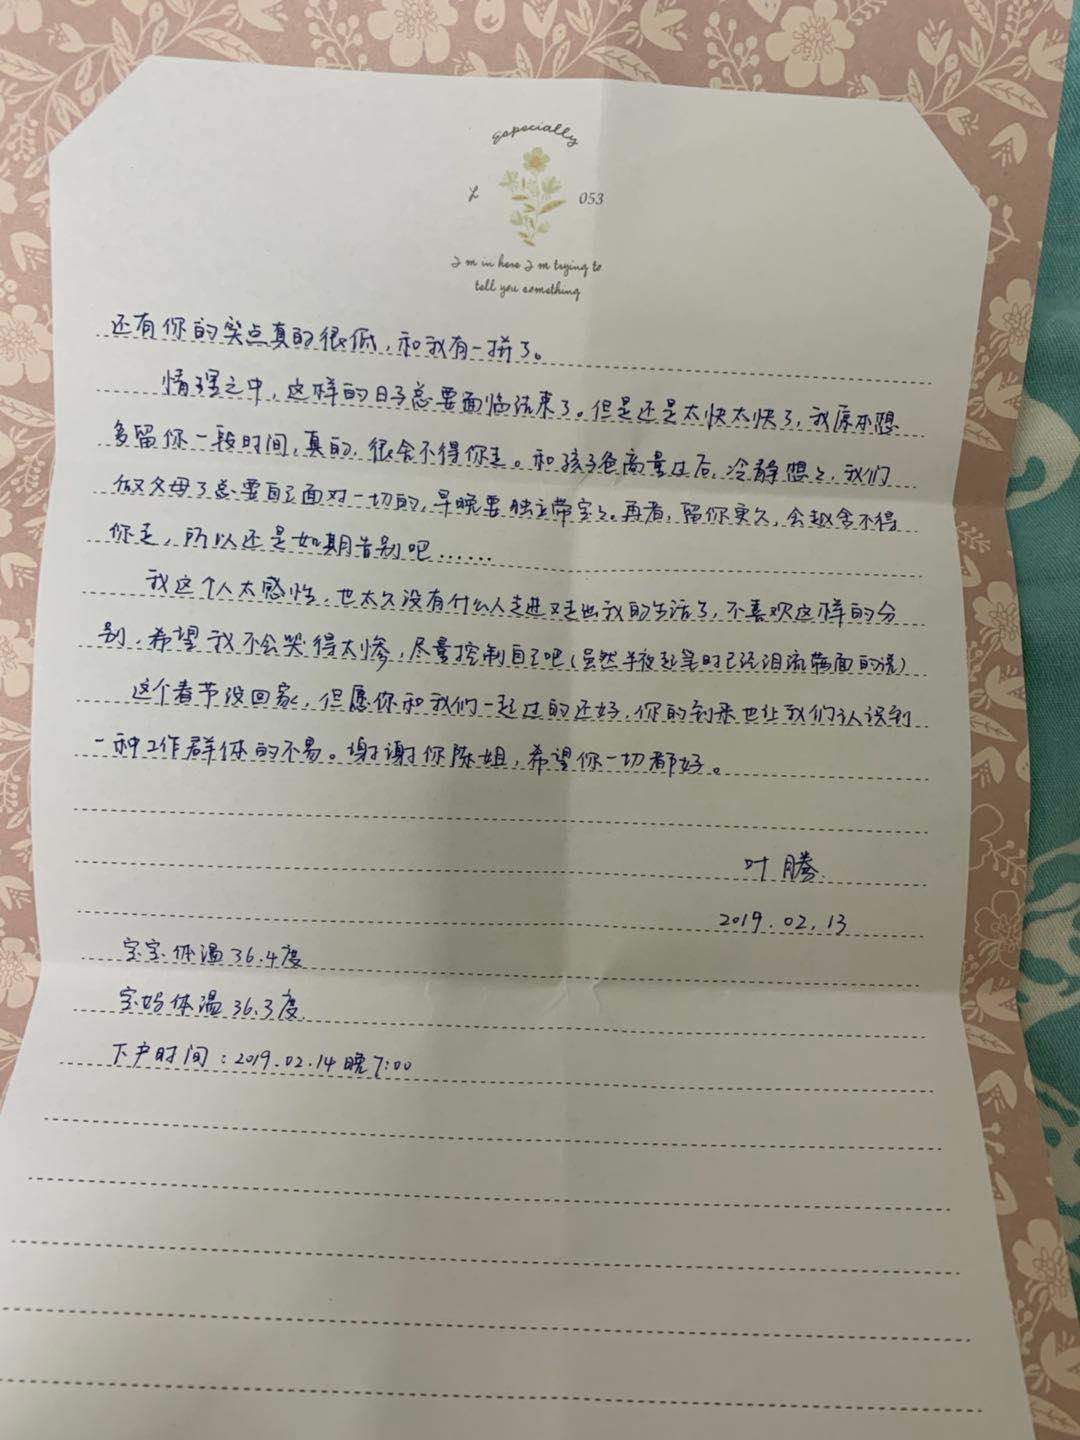 Especially
L 053
I m in here I m trying to
tell you something
还有你的笑点真的很低,和我有一拼了。
情理之中,这样的日子总要面临结束了。但是还是太快太快了,我原本想
多留你一段时间,真的,很舍不得你走。和孩子爸商量过后,冷静想之,我们
做父母了总要自己面对一切的,早晚要独立带宝宝。再者,留你更久,会越舍不得
你走,所以还是如期告别吧……
我这个人太感性,也太久没有什么人走进又走出我的生活了,不喜欢这样的分
别,希望我不会哭得太惨,尽量控制自己吧(虽然半夜起笔时已经泪流满面的说)
这个春节没回家,但愿你和我们一起过的还好,你的到来也让我们认识到
一种工作群体的不易。谢谢你陈姐,希望你一切都好。
叶腾
2019.02.13
宝宝体温36.4度
宝妈体温36.3度
下户时间:2019.02.14晚7:00